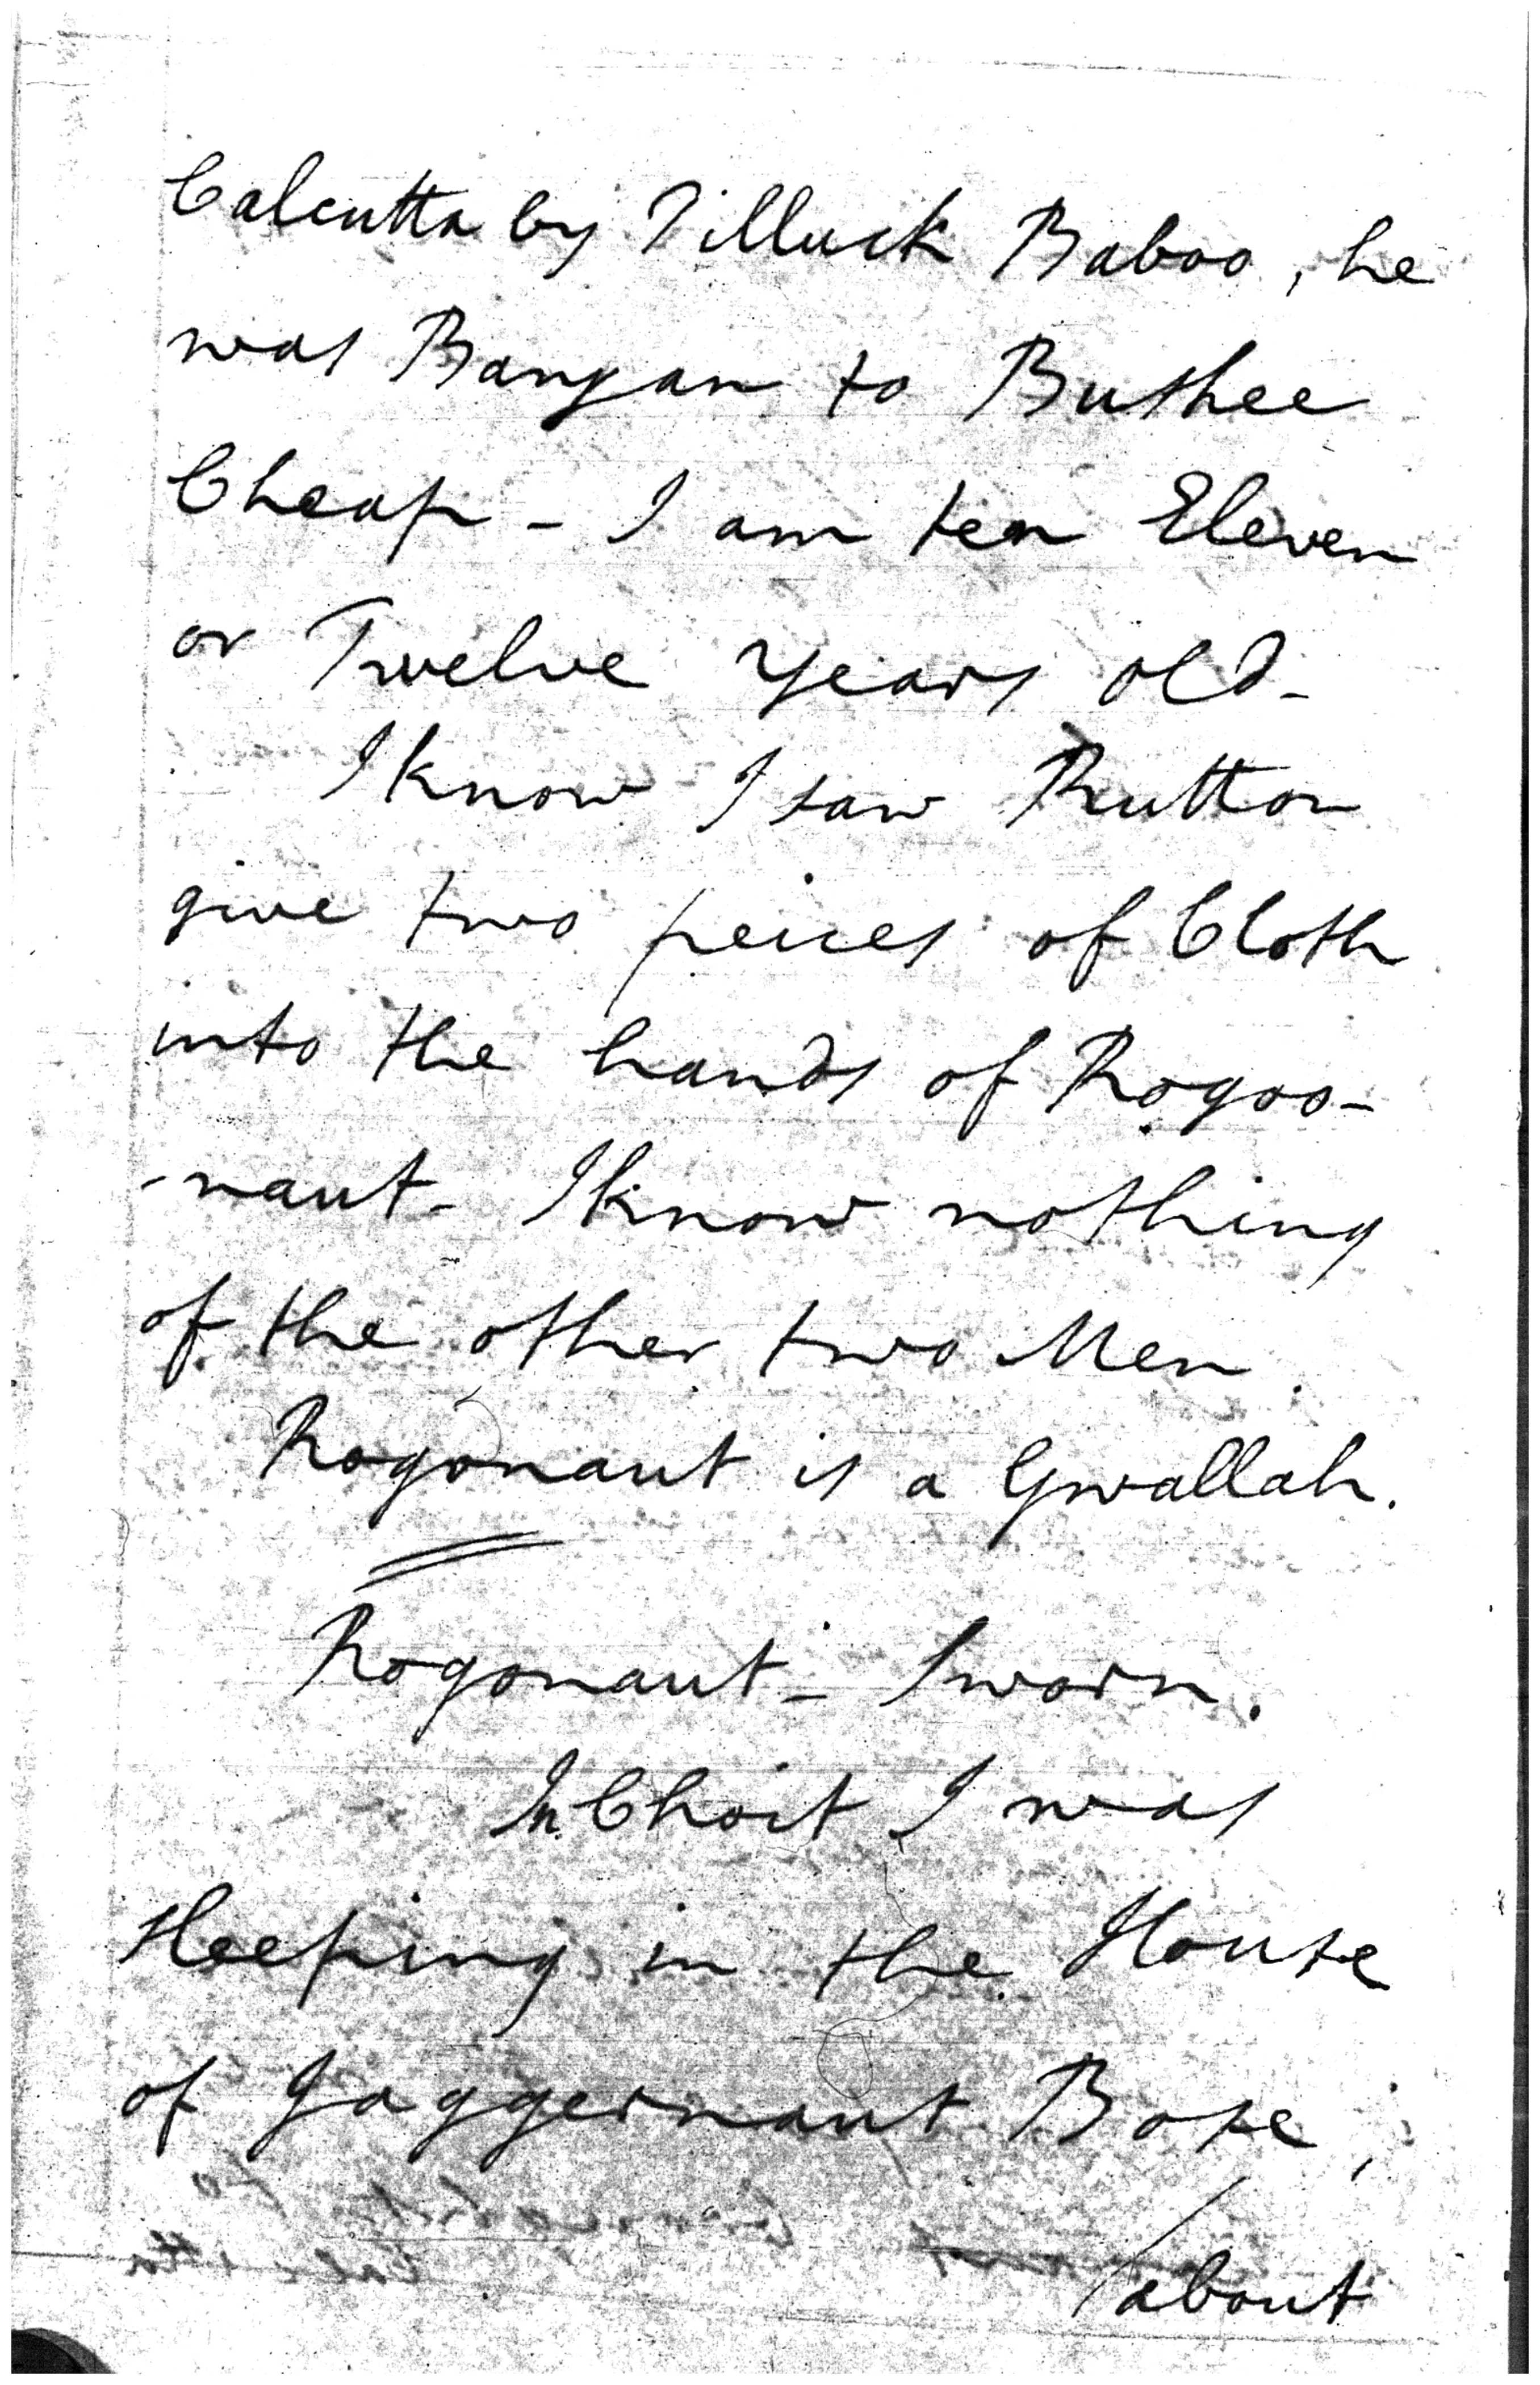 Calcutta by Tilluck Baboo, he
was Bangan to Buthee
Cheap - I am ten Eleven
or Twelve years old -
I know I saw Rutton
give two peices of Cloth
into the hands of Rogoo-
-naut - I know nothing
of the other two Men.
Rogonaut is a Gwallah.
Rogonaut - Sworn.
In Choit I was
sleeping in the House
of Jaggernaut Bose,
/about